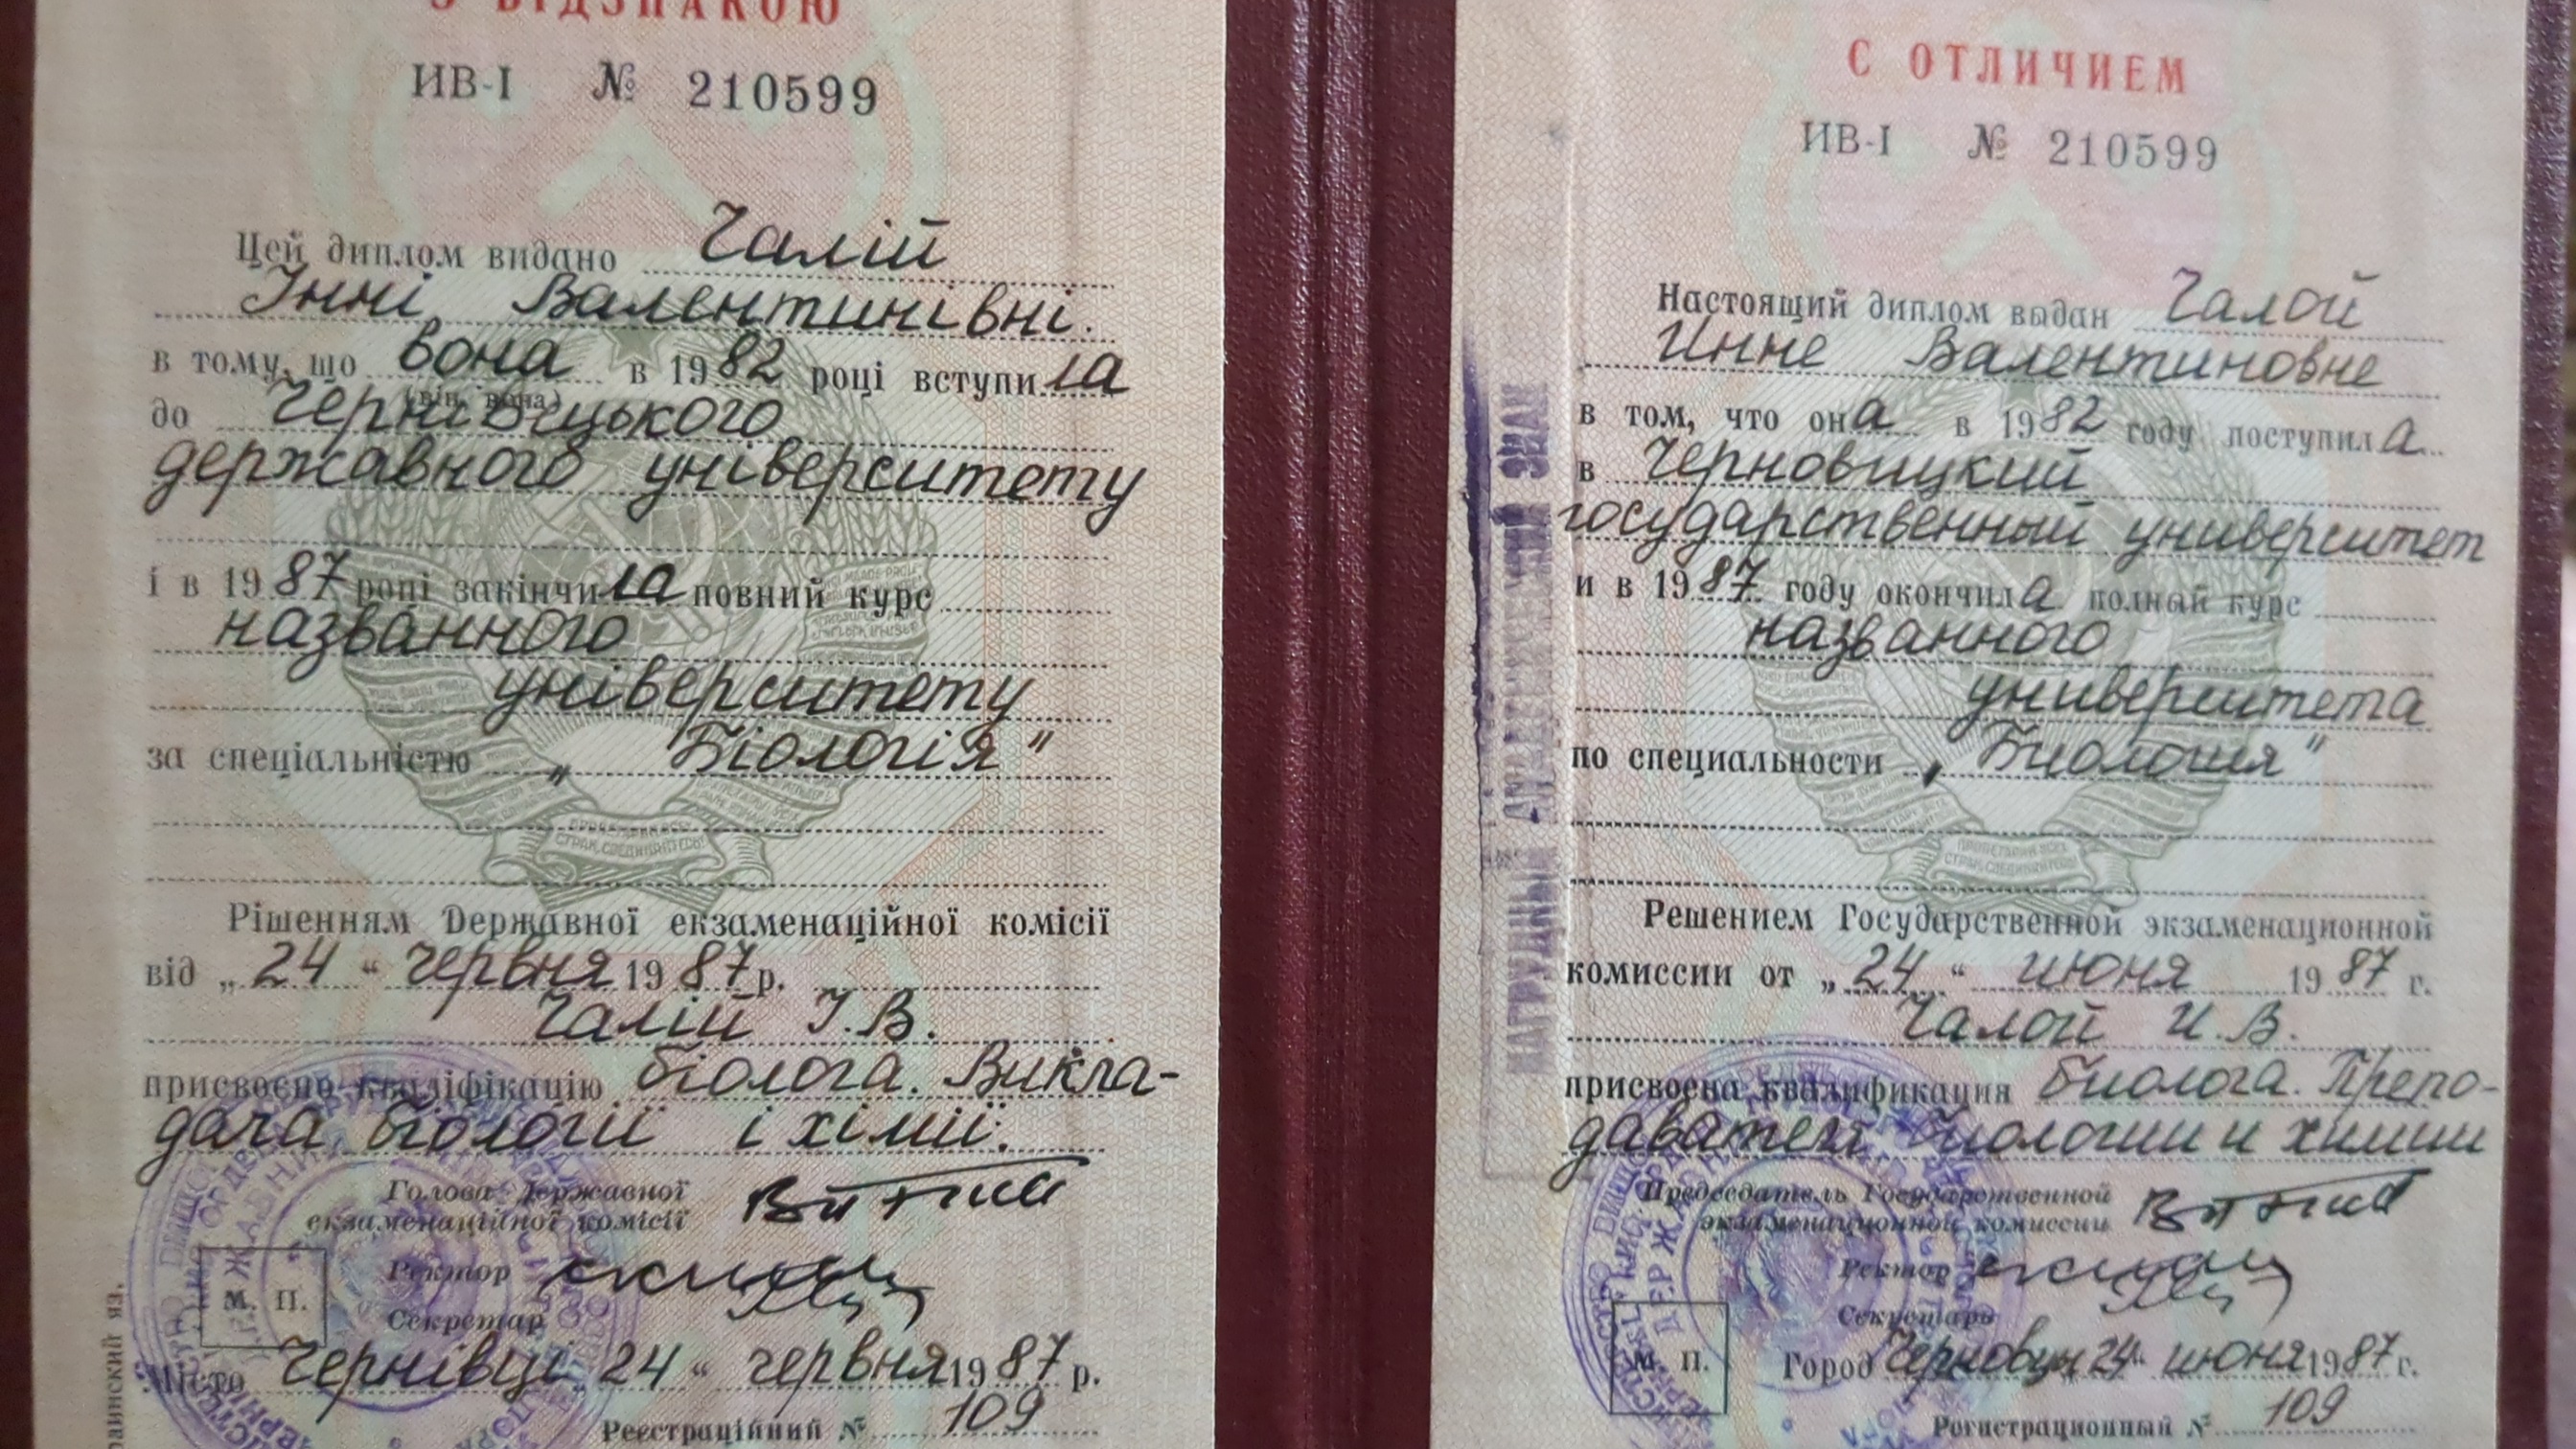 З ВІДЗНАКОЮ
ИВ-I № 210599
Цей диплом видано Чалій
Інні Валентинівні.
в тому, що вона в 1982 році вступила
(він, вона)
до Чернівецького
державного університету
і в 1987 році закінчила повний курс
названного
університету
за спеціальністю „Біологія"
Рішенням Державної екзаменаційної комісії
від „24" червня 1987 р.
Чалій І.В.
присвоєно кваліфікацію біолога. Викла-
дача біології і хімії.
Голова Державної
екзаменаційної комісії
Ректор
Секретар
М. П.
Місто Чернівці „24" червня 1987 р.
Реєстраційний № 109
С ОТЛИЧИЕМ
ИВ-I № 210599
Настоящий диплом выдан Чалой
Инне Валентиновне
в том, что она в 1982 году поступила
в Черновицкий
государственный университет
и в 1987 году окончила полный курс
названного
университета
по специальности „Биология"
Решением Государственной экзаменационной
комиссии от „24" июня 1987 г.
Чалой И.В.
присвоена квалификация биолога. Препо-
давателя биологии и химии
Председатель Государственной
экзаменационной комиссии
Ректор
Секретарь
М. П.
Город Черновцы „24" июня 1987 г.
Регистрационный № 109
НАГРУДНЫЙ АКАДЕМИЧЕСКИЙ ЗНАК